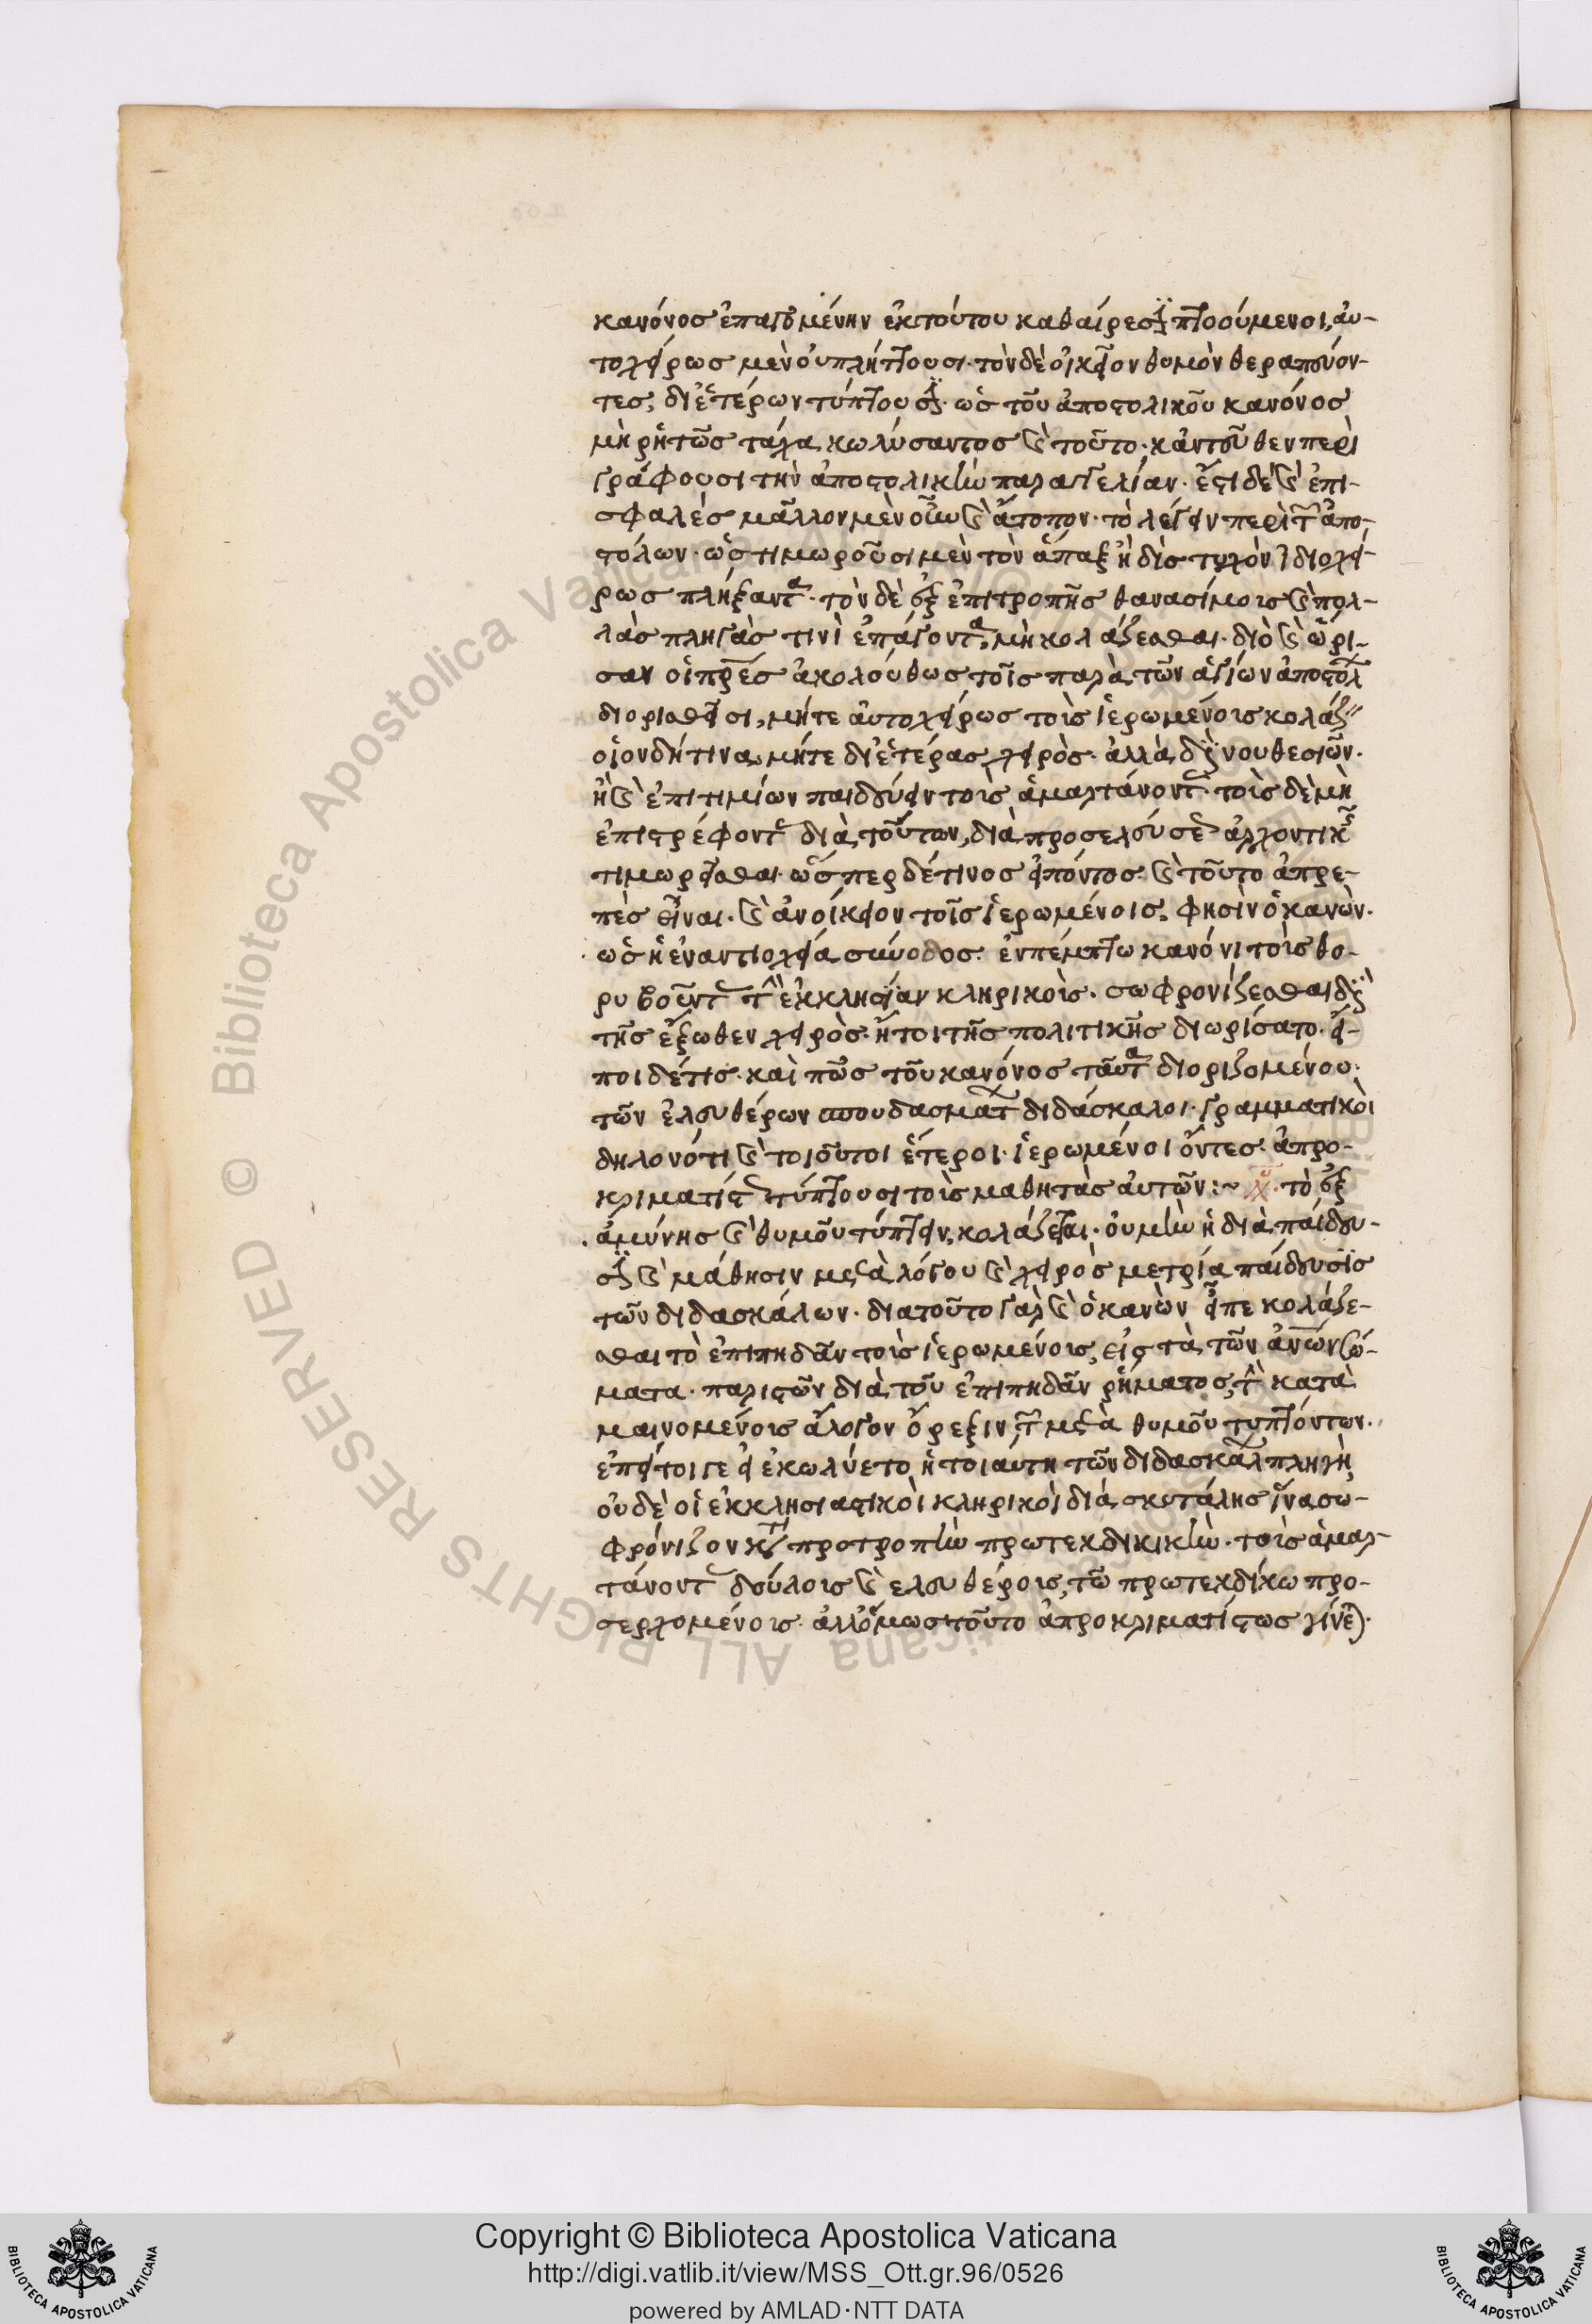 κανόνος ἐπαγομένην ἐκ τούτου καθαίρεσιν πτοούμενοι, αὐ-
τοχείρως μὲν οὐ πλήττουσι· τὸν δὲ οἰκεῖον θυμὸν θεραπεύον-
τες, δι' ἑτέρων τύπτουσιν· ὡς τοῦ ἀποστολικοῦ κανόνος
μὴ ῥητῶς τάχα κωλύσαντος καὶ τοῦτο· κἀντεῦθεν περι
γράφουσι τὴν ἀποστολικὴν παραγγελίαν· ἔστι δὲ καὶ ἐπι-
σφαλὲς μᾶλλον μὲν οὖν καὶ ἄτοπον· τὸ λέγειν περὶ τῶν ἀπο-
στόλων· ὡς τιμωροῦσι μὲν τὸν ἅπαξ ἢ δὶς τυχὸν ἰδιοχεί-
ρως πλήξαντα· τὸν δὲ ἐξ ἐπιτροπῆς θανασίμοις καὶ πολ-
λὰς πληγάς τινι ἐπάγοντα, μὴ κολάζεσθαι· διὸ καὶ ὥρι-
σαν οἱ πρες ἀκολούθως τοῖς παρὰ τῶν ἁγίων ἀποστόλων
διορισθεῖσι, μήτε αὐτοχείρως τοὺς ἱερωμένους κολάζειν
οἱονδήτινα, μήτε δι' ἑτέρας χειρός· ἀλλὰ διὰ νουθεσιῶν·
ἢ καὶ ἐπιτιμίων παιδεύειν τοὺς ἁμαρτάνοντας· τοὺς δὲ μὴ
ἐπιστρέφοντας διὰ τούτων, διὰ προσελεύσεως ἀρχοντικῆς
τιμωρεῖσθαι· ὥσπερ δέ τινος εἰπόντος καὶ τοῦτο ἀπρε-
πὲς εἶναι· καὶ ἀνοίκειον τοῖς ἱερωμένοις, φησὶν ὁ κανών·
ὡς ἡ ἐν ἀντιοχείᾳ σύνοδος· ἐν πέμπτῳ κανόνι τοὺς θο-
ρυβοῦντας τὴν ἐκκλησίαν κληρικούς· σωφρονίζεσθαι διὰ
τῆς ἔξωθεν χειρός· ἤτοι τῆς πολιτικῆς διωρίσατο· εἴ-
ποι δέ τις· καὶ πῶς τοῦ κανόνος ταῦτα διοριζομένου·
τῶν ἐλευθέρων σπουδασμάτων διδάσκαλοι· γραμματικοὶ
δηλονότι καὶ τοιοῦτοι ἕτεροι· ἱερωμένοι ὄντες· ἀπρο-
κριματίστως τύπτουσι τοὺς μαθητὰς αὐτῶν:~ τὸ ἐξ
ἀμύνης καὶ θυμοῦ τύπτειν, κολάζεται· οὐ μὴν ἡ διὰ παίδευ-
σιν καὶ μάθησιν μετὰ λόγου καὶ χειρὸς μετρία παίδευσις
τῶν διδασκάλων· διατοῦτο γὰρ καὶ ὁ κανὼν εἶπε κολάζε-
σθαι τὸ ἐπιπηδᾶν τοὺς ἱερωμένους, εἰς τὰ τῶν ἀνων σώ-
ματα· παριστῶν διὰ τοῦ ἐπιπηδᾶν ῥήματος, τὴν κατὰ
μαινομένους ἄλογον ὄρεξιν, τῶν μετὰ θυμοῦ τυπτόντων·
ἐπείτοιγε εἰ ἐκωλύετο ἡ τοιαύτη τῶν διδασκάλων πληγὴ,
οὐδὲ οἱ ἐκκλησιαστικοὶ κληρικοὶ διὰ σκυτάλης ἵνα σω-
φρόνιζον κατὰ προτροπὴν πρωτεκδικικὴν· τοὺς ἁμαρ-
τάνοντας δούλους καὶ ἐλευθέρους, τῶ πρωτεκδίκω προ-
σερχομένους· ἀλλ' ὅμως τοῦτο ἀπροκριματίστως γίνεται·